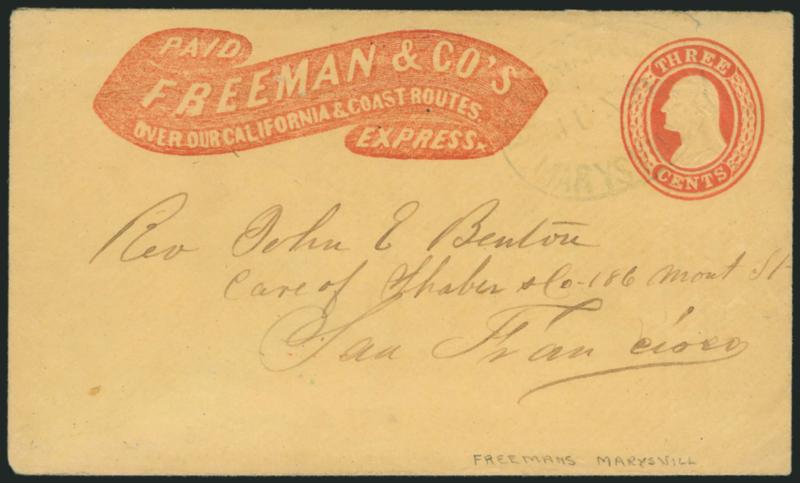 PAID
FREEMAN & CO'S
OVER OUR CALIFORNIA & COAST ROUTES.
EXPRESS.
THREE
CENTS
MARYS
Rev John E Benton
Care of Thaber & Co - 186 Mont St
San Francisco
FREEMANS MARYSVILL